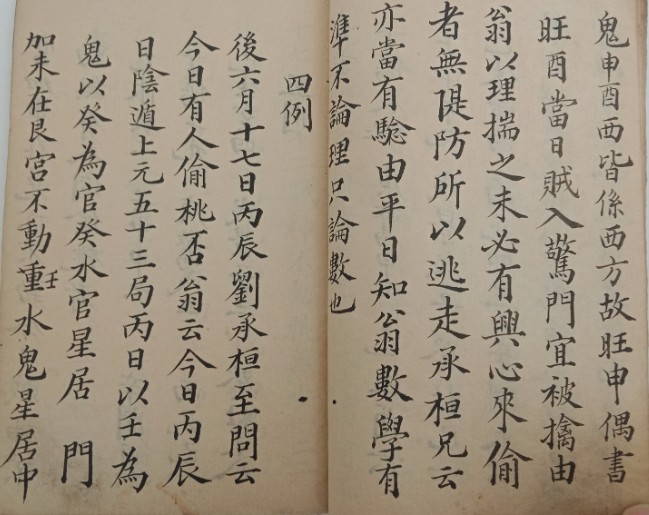 鬼申酉西皆係西方故旺申偶書
旺酉當日賊入驚門宜被擒由
翁以理揣之未必有興心來偷
者無隄防所以逃走承桓兄云
亦當有驗由平日知翁數學有
準不論理只論數也
四例
後六月十七日丙辰劉承桓至問云
今日有人偷桃否翁云今日丙辰
日陰遁上元五十三局丙日以壬為
鬼以癸為官癸水官星居 門
加未在艮宮不動重壬水鬼星居中